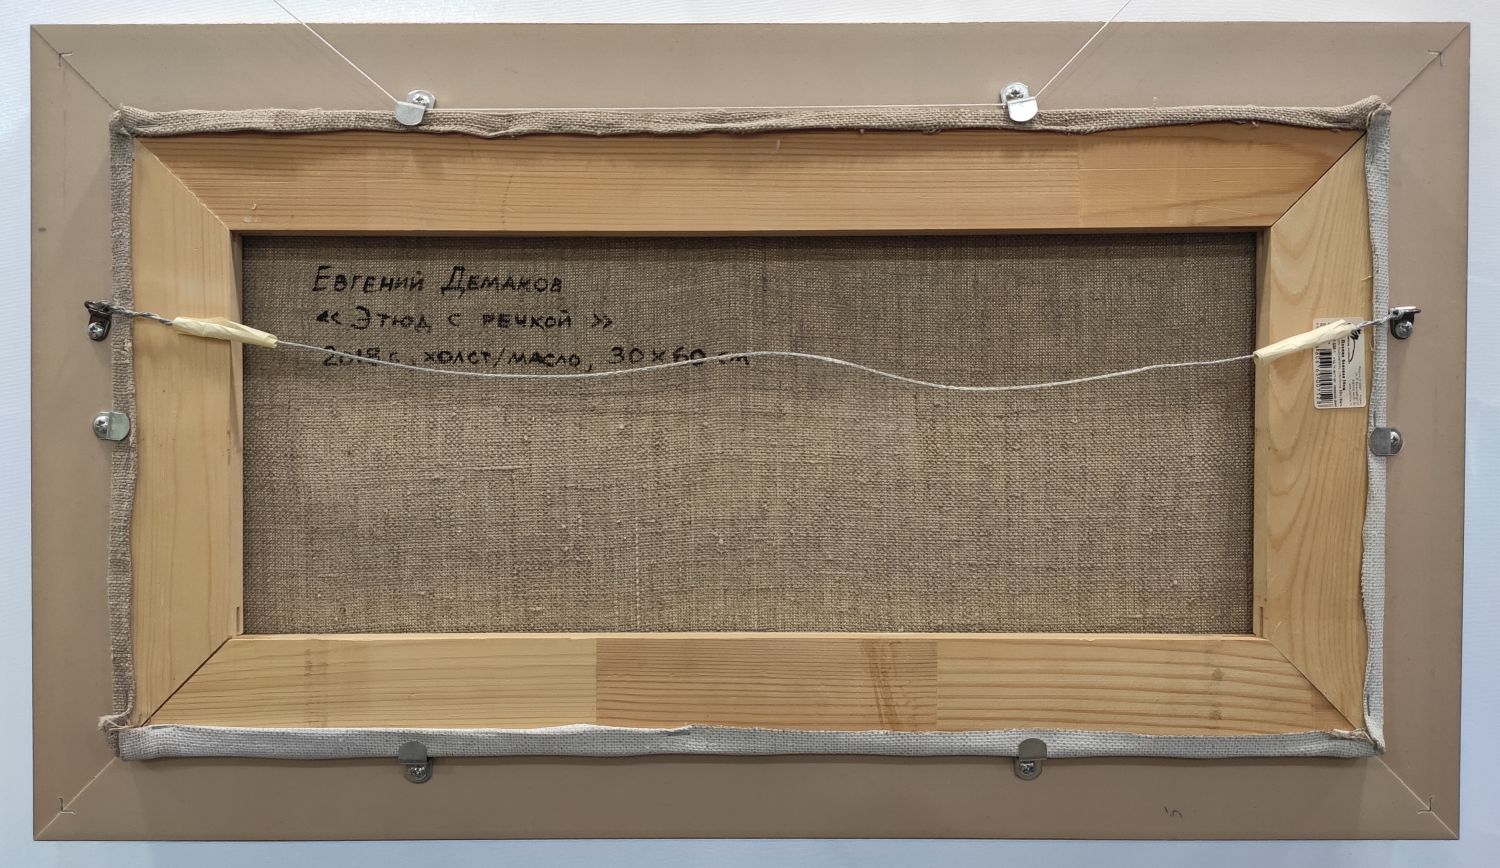 Евгений Демаков
«Этюд с речкой»
2018 г., холст/масло, 30×60 cm